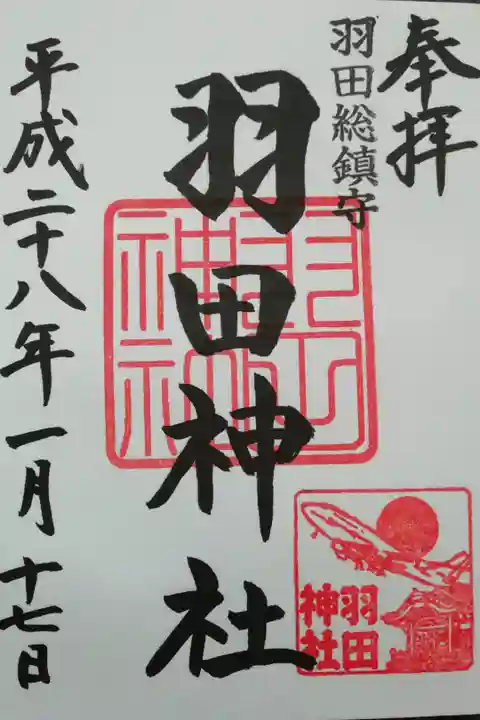 奉拝
羽田総鎮守
羽田神社
羽田神社
羽田
神社
平成二十八年一月十七日